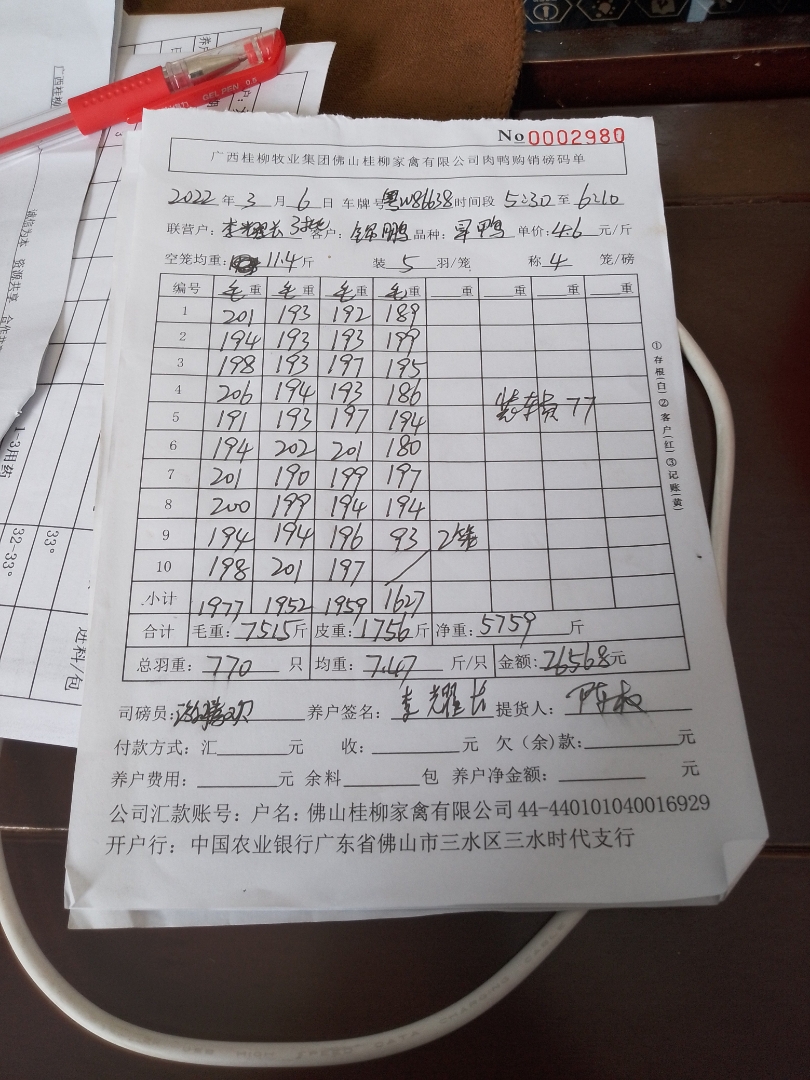 No 0002980
广西桂柳牧业集团佛山桂柳家禽有限公司肉鸭购销磅码单
2022 年 3 月 6 日 车牌号 粤W86638 时间段 5:30 至 6:10
联营户: 李耀长 客户: 锦鹏 品种: 旱鸭 单价: 4.6 元/斤
空笼均重: 11.4 斤 装 5 羽/笼 称 4 笼/磅
编号 毛重 毛重 毛重 毛重 重 重 重 重
1 201 193 192 189
2 194 193 193 199
3 198 193 197 195
4 206 194 193 186 装车费 77
5 191 193 197 194
6 194 202 201 180
7 201 190 199 197
8 200 199 194 194
9 194 194 196 93 2笼
10 198 201 197 /
小计 1977 1952 1959 1627
合计 毛重: 7515 斤 皮重: 1756 斤 净重: 5759 斤
总羽重: 770 只 均重: 7.47 斤/只 金额: 26568 元
司磅员: 养户签名: 李耀长 提货人:
付款方式: 汇 元 收: 元 欠(余)款: 元
养户费用: 元 余料 包 养户净金额: 元
公司汇款账号: 户名: 佛山桂柳家禽有限公司 44-440101040016929
开户行: 中国农业银行广东省佛山市三水区三水时代支行
①存根(白)②客户(红)③记账(黄)
GEL PEN 0.5
广西桂柳
诚信为本 资源共享 合作
1-3用药
33°
32-33°
进料/包